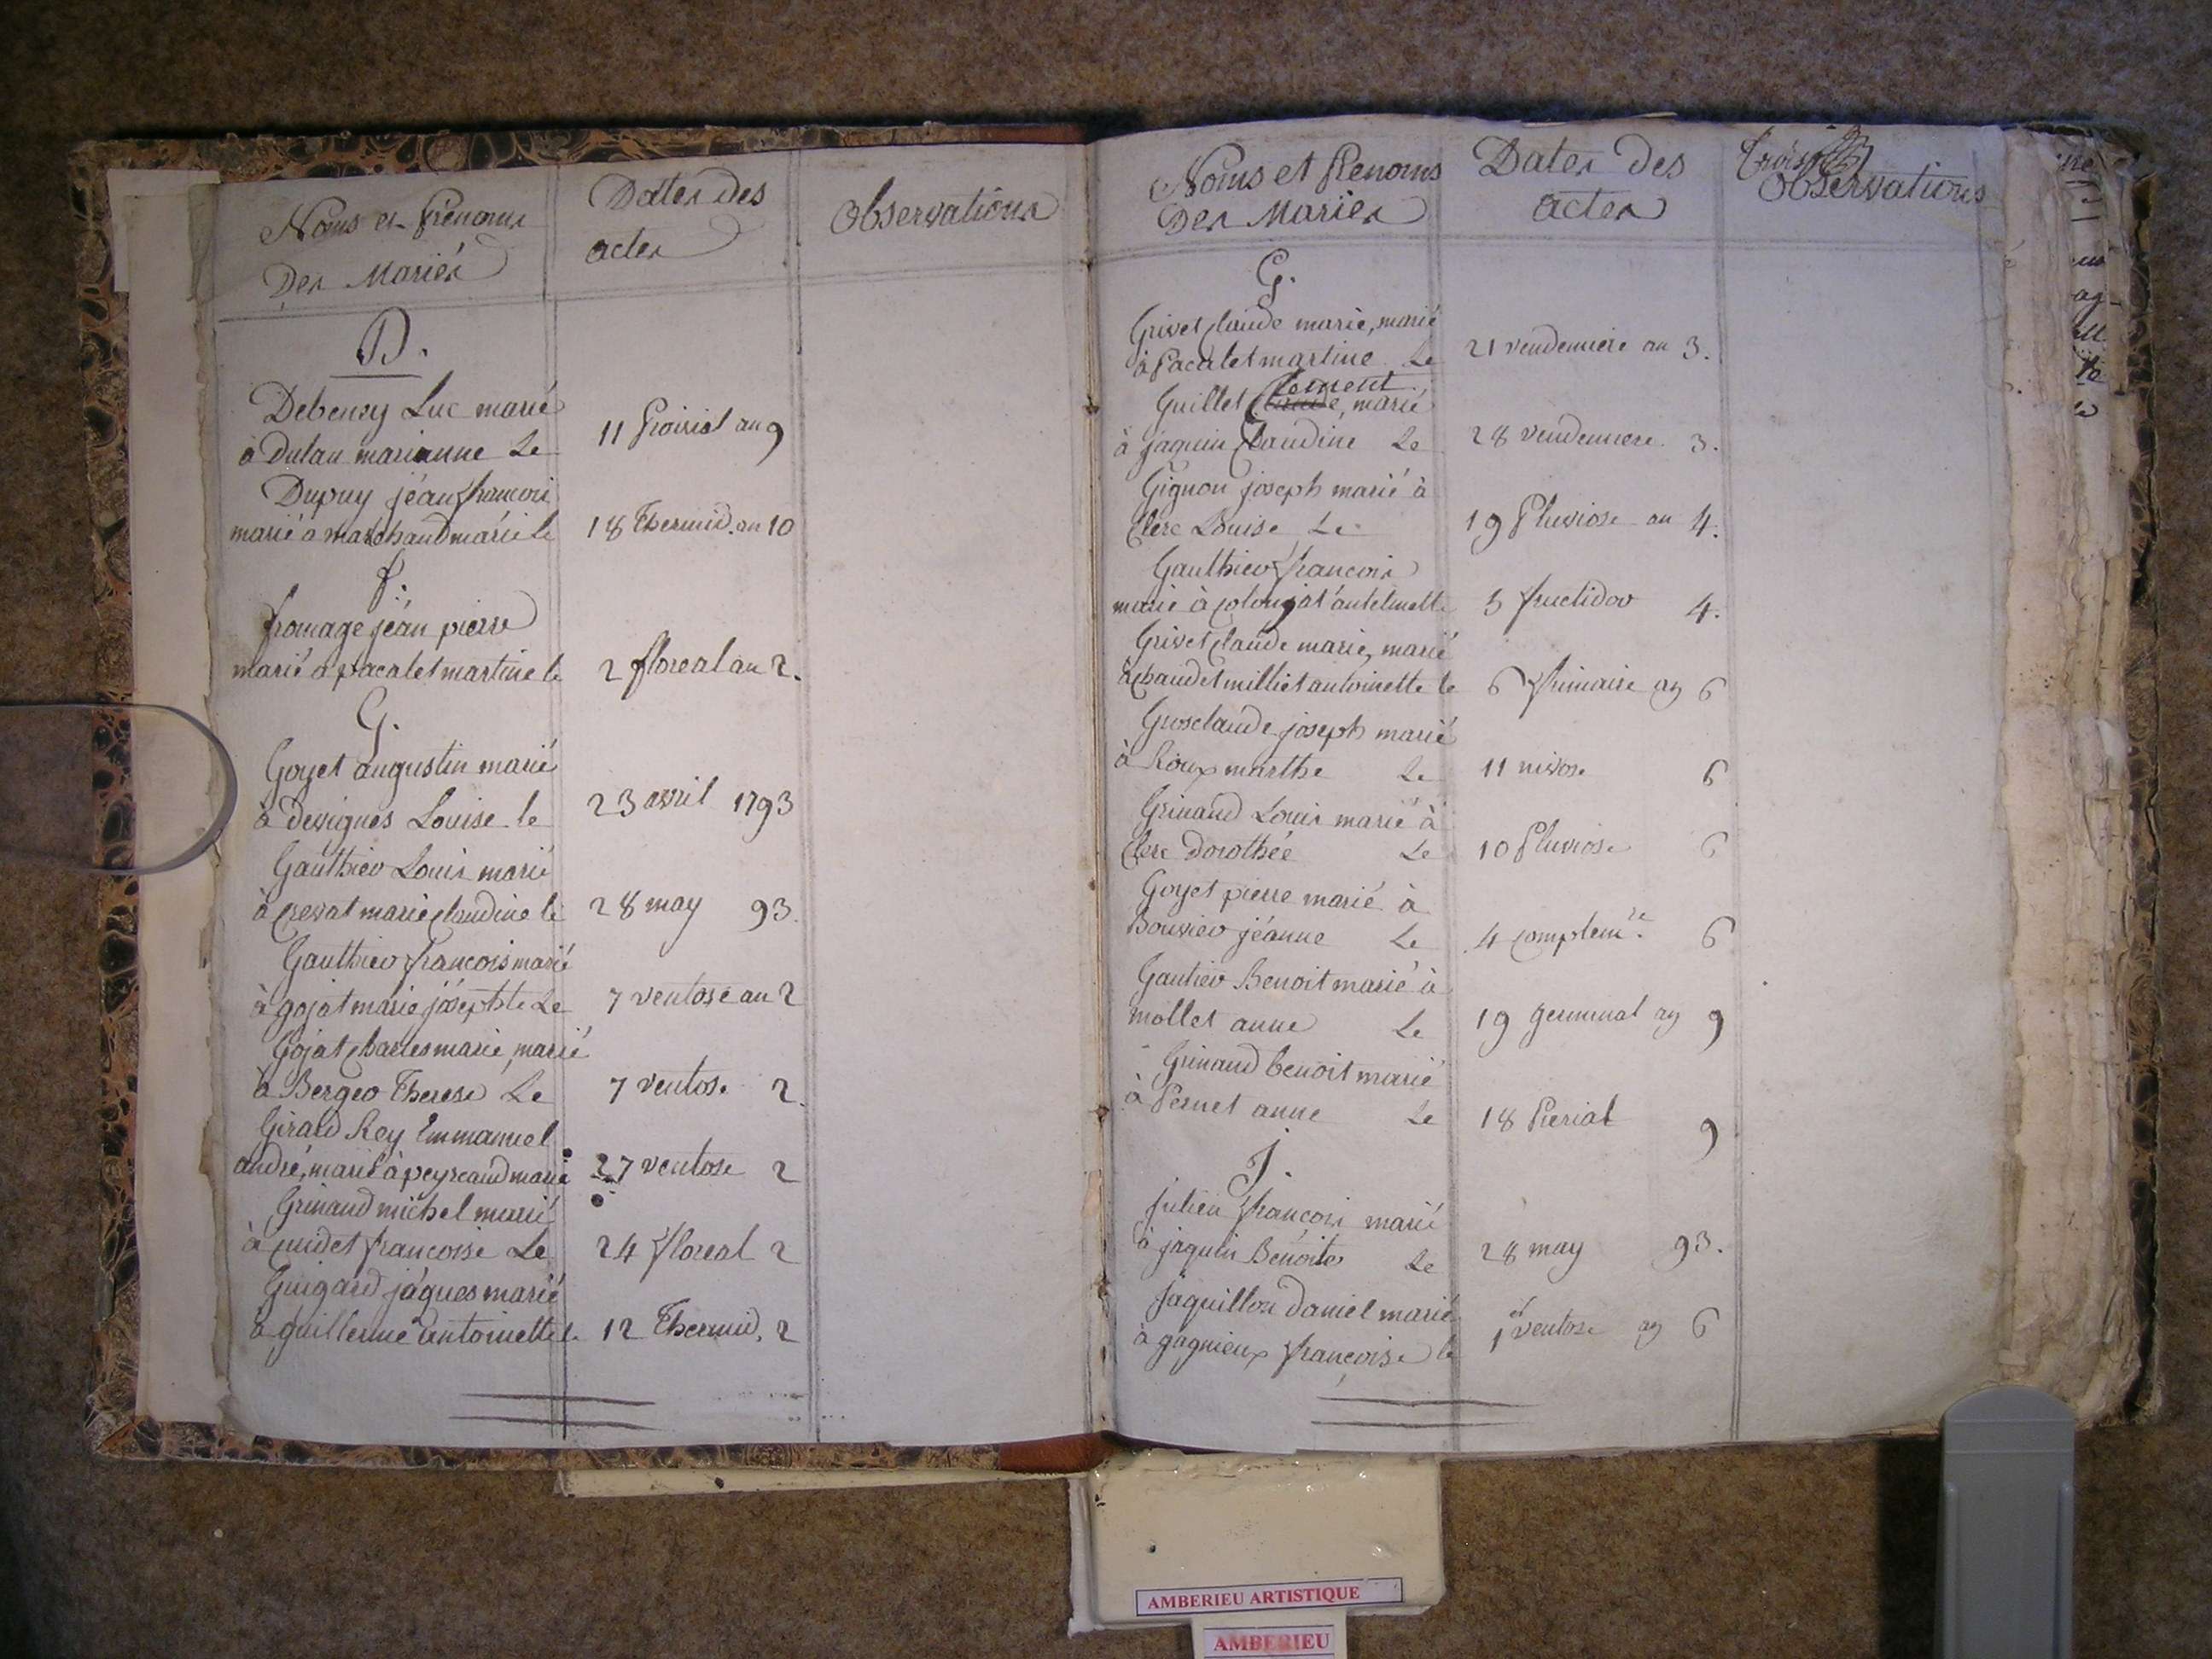 Noms et Prénoms
Des Mariés
Dates des
actes
Observations
D.
Debeney Luc marié
à Dulau marianne Le
11 au 9
Dupuy jéan francois
marié a marchand marie le
18 Thermid. an 10
f.
fromage jéan pierre
marié a pacalet martine le
2 floreal an 2.
G.
Goyet augustin marié
à devignes Louise le
23 avril 1793
Gauthier Louis marié
à Crevat marie Claudine le
28 may 93.
Gauthier francois marié
à gojat marie joséphte Le
7 ventose an 2
Gojat Charles marie, marié
à Berger Therese Le
7 ventose 2.
Girard Rey Emmanuel
andré, marié à peyreaud marie
27 ventose 2
Grinand michel marié
à juidet francoise Le
24 floreal 2
Guigard jaques marié
à guillerme antoinette le
12 Thermid. 2
Noms et Prenoms
Des Mariés
Dates des
actes
Trois
Observations
G.
Grivet Claude marie, marié
à Pacalet martine Le
21 vendemiere an 3.
Clement
Guillet Claude, marié
à jaquin Claudine Le
28 vendemiere 3.
Gignon joseph marié à
Clerc Louise Le
19 Pluviose an 4.
Gauthier francois
marié à antelmette
3 fructidor 4.
Grivet Claude marie, marié
à Chaudet milliet antoinette le
6 frimaire an 6
Grosclaude joseph marié
à Roux marthe Le
11 nivose 6
Grinand Louis marié à
Clerc Dorothée Le
10 Pluviose 6
Goyet pierre marié à
Bouvier jéanne Le
4 complem.re 6
Gautier Benoit marié à
mollet anne Le
19 germinal an 9
Grinand benoit marié
à Pernet anne Le
18 Prerial 9
J.
Julien françois marié
à jaquin Benoite Le
28 may 93.
Jaquillon Daniel marié
à gagnieux françoise le
1er ventose an 6
AMBERIEU ARTISTIQUE
AMBERIEU